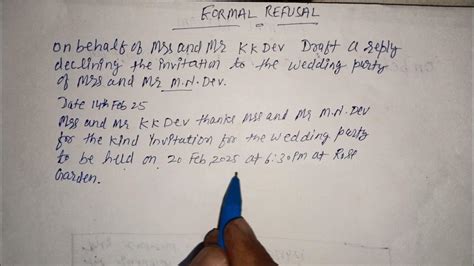 FORMAL REFUSAL
On behalf of Mrs and Mr K K Dev Draft a reply
declining the invitation to the wedding party
of Mrs and Mr M.N. Dev.
Date 14th Feb 25
Mrs and Mr K K Dev thanks Mrs and Mr M.N. Dev
for the kind invitation for the wedding party
to be held on 20 Feb, 2025 at 6:30PM at Rose
Garden.